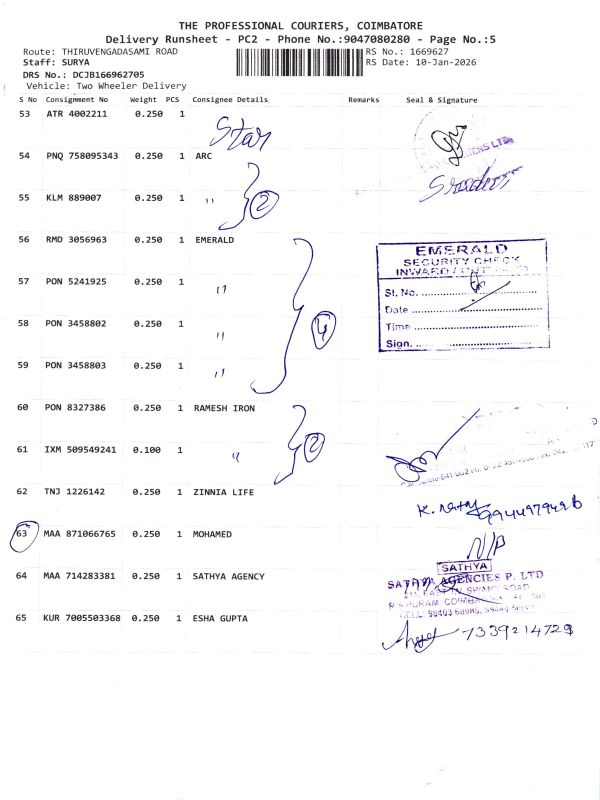 THE PROFESSIONAL COURIERS, COIMBATORE
Delivery Runsheet - PC2 - Phone No.:9047080280 - Page No.:5
Route: THIRUVENGADASAMI ROAD RS No.: 1669627
Staff: SURYA RS Date: 10-Jan-2026
DRS No.: DCJB166962705
Vehicle: Two Wheeler Delivery
S No Consignment No Weight PCS Consignee Details Remarks Seal & Signature
53 ATR 4002211 0.250 1 Star
54 PNQ 758095343 0.250 1 ARC
55 KLM 889007 0.250 1 " 2
56 RMD 3056963 0.250 1 EMERALD
EMERALD
SECURITY CHECK
57 PON 5241925 0.250 1 "
Sl. No.
Date
58 PON 3458802 0.250 1 " 4
Time
Sign.
59 PON 3458803 0.250 1 "
60 PON 8327386 0.250 1 RAMESH IRON
61 IXM 509549241 0.100 1 " 2
62 TNJ 1226142 0.250 1 ZINNIA LIFE
63 MAA 871066765 0.250 1 MOHAMED N/P
64 MAA 714283381 0.250 1 SATHYA AGENCY
SATHYA
SATHYA AGENCIES P. LTD
65 KUR 7005503368 0.250 1 ESHA GUPTA
7339214729